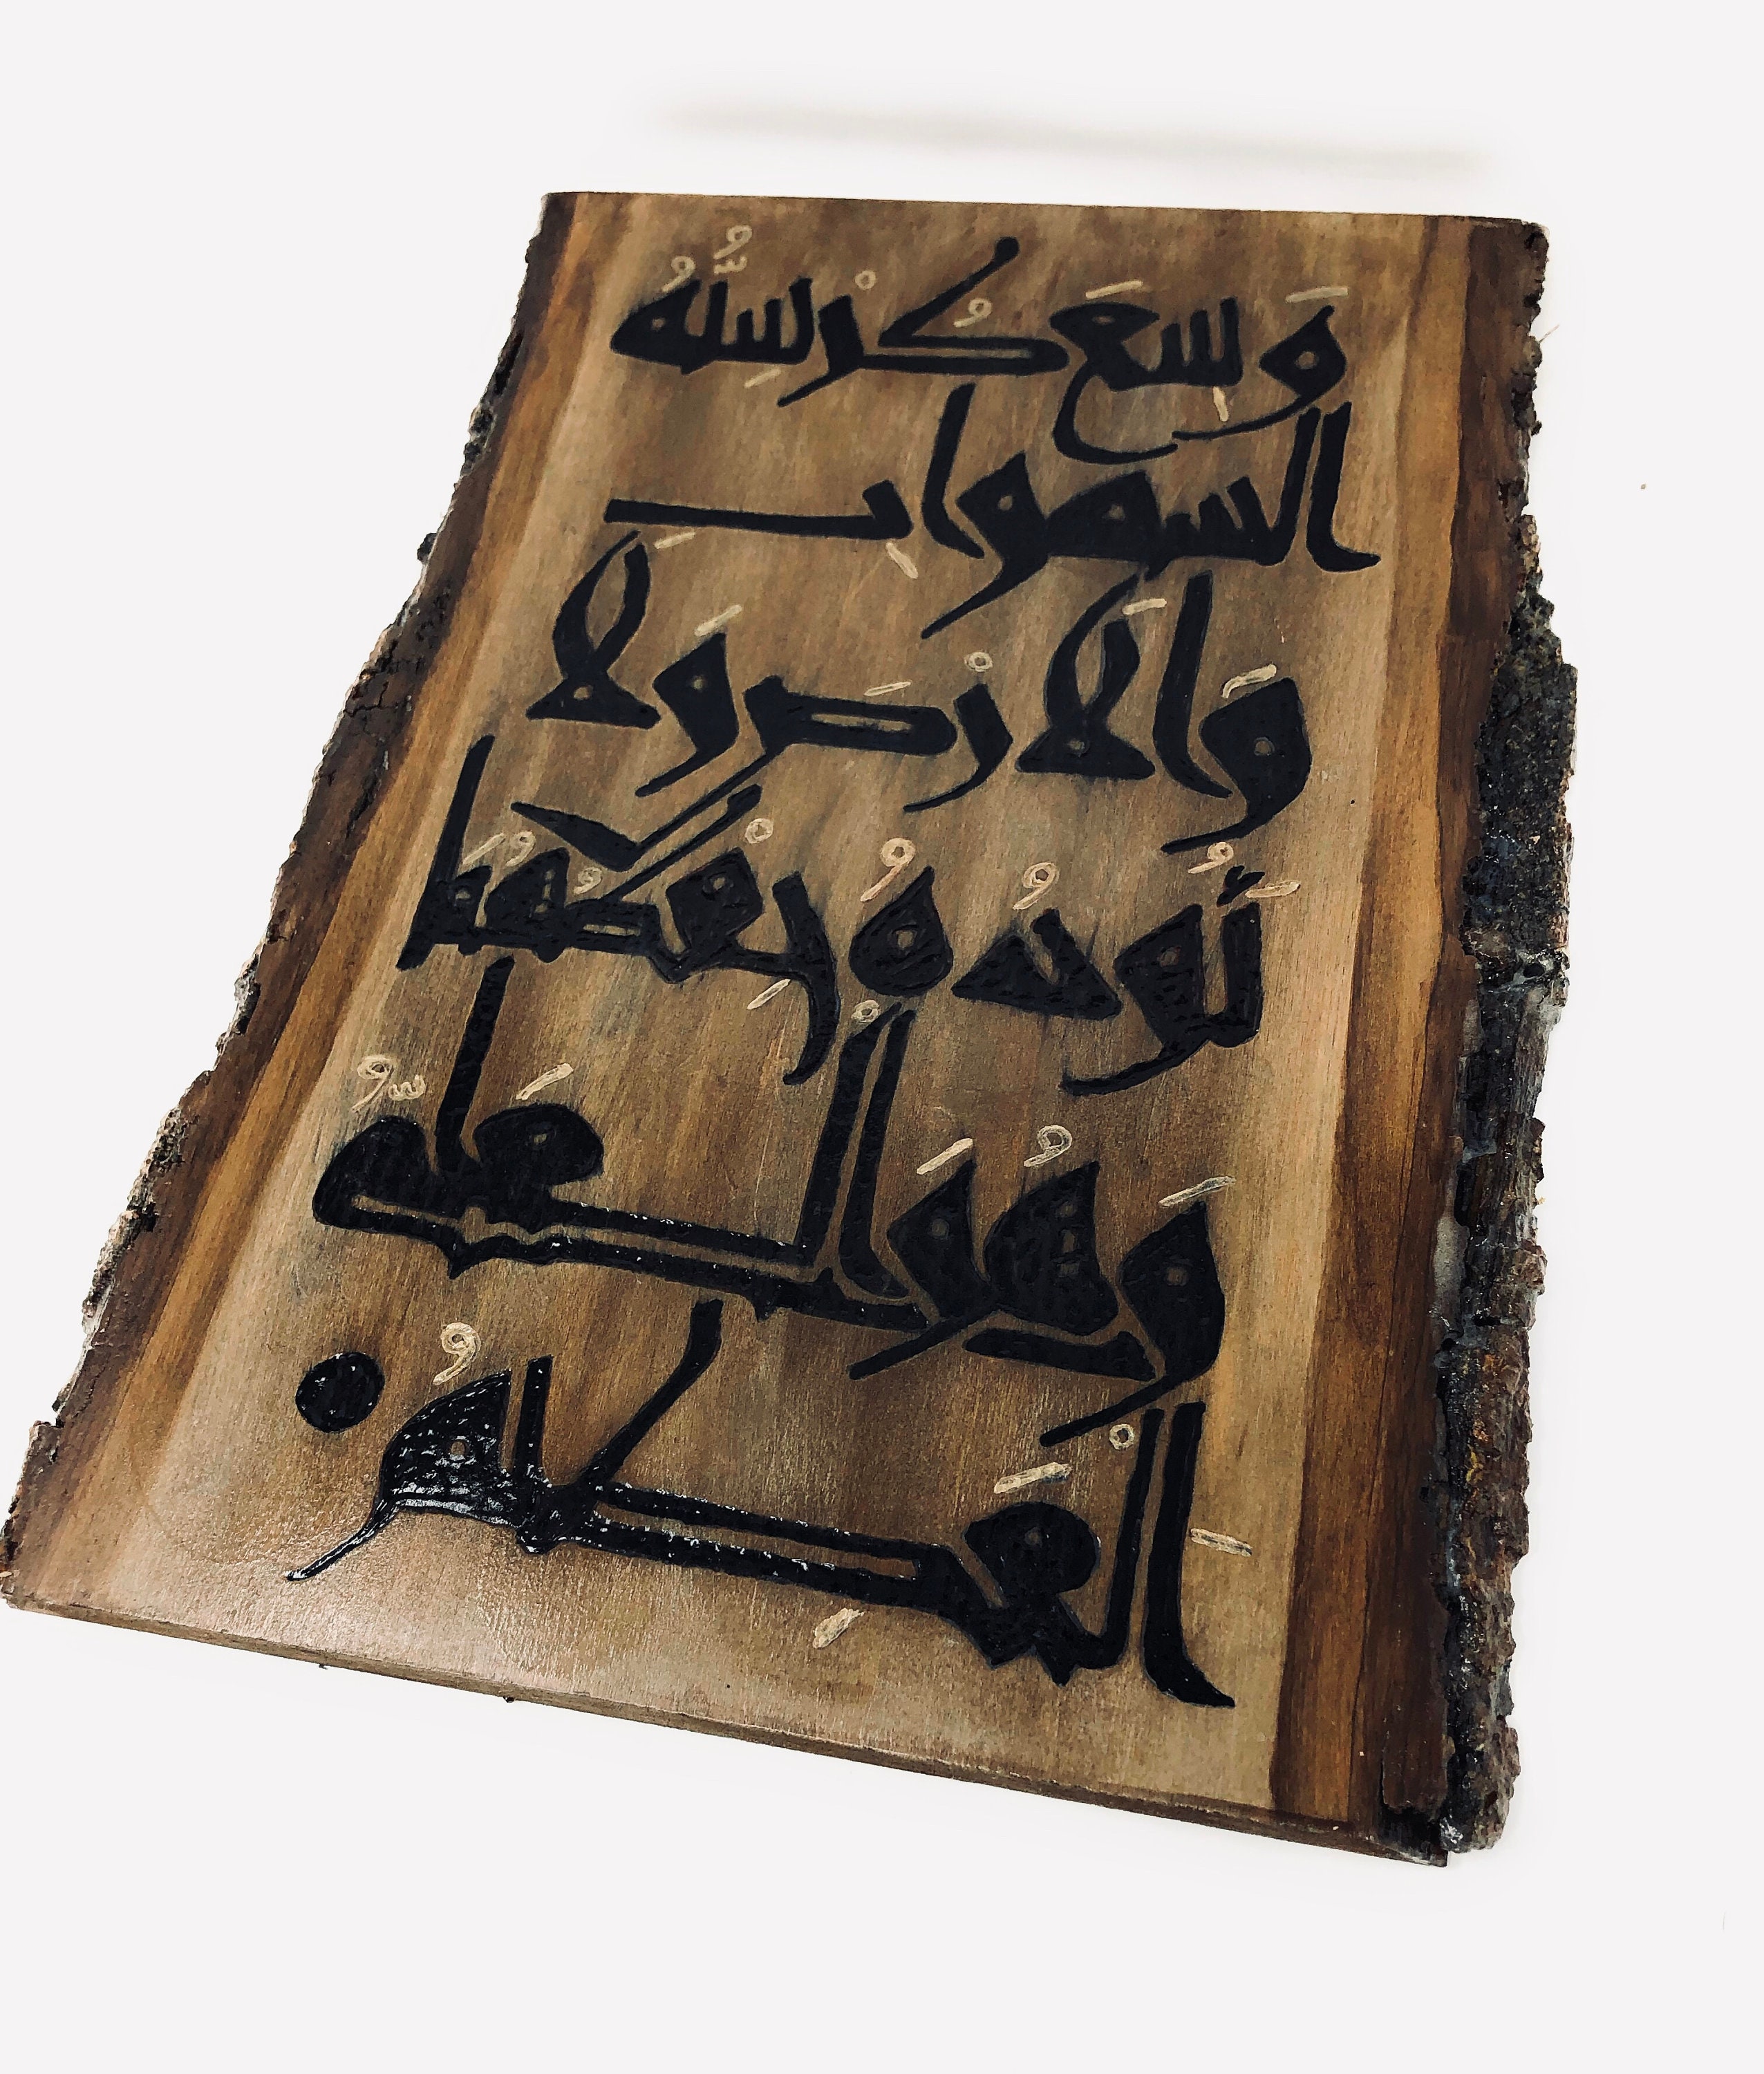 وَسِعَ كُرْسِيُّهُ
السَّمَوَاتِ
وَالْأَرْضَ وَلَا
يَئُودُهُ حِفْظُهُمَا
وَهُوَ الْعَلِيُّ
الْعَظِيمُ